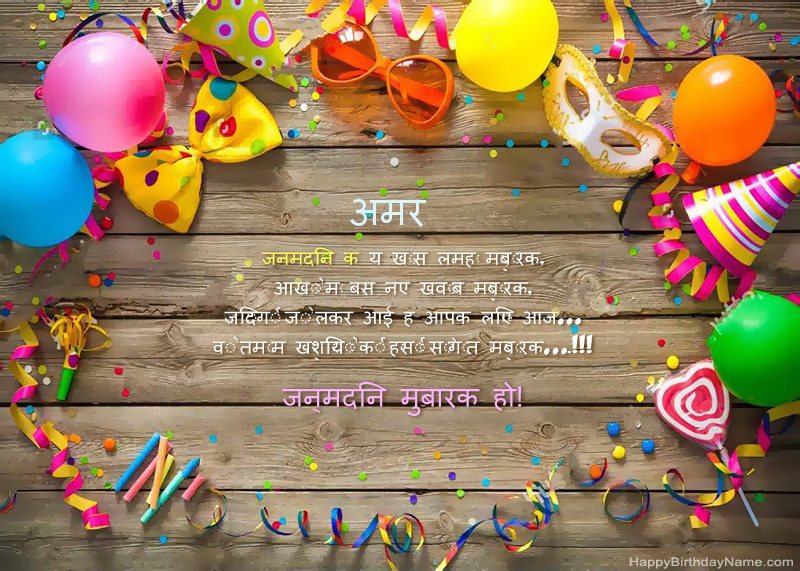 अमर
जनमदिन क य ख़ास लमह मुबारक,
आंखों में बसे नए ख्वाब मुबारक,
जिंदगी जो लेकर आई है आपके लिए आज...
वो तमाम खुशियों की हंसी सौगात मुबारक...!!!
जन्मदिन मुबारक हो!
HappyBirthdayName.com